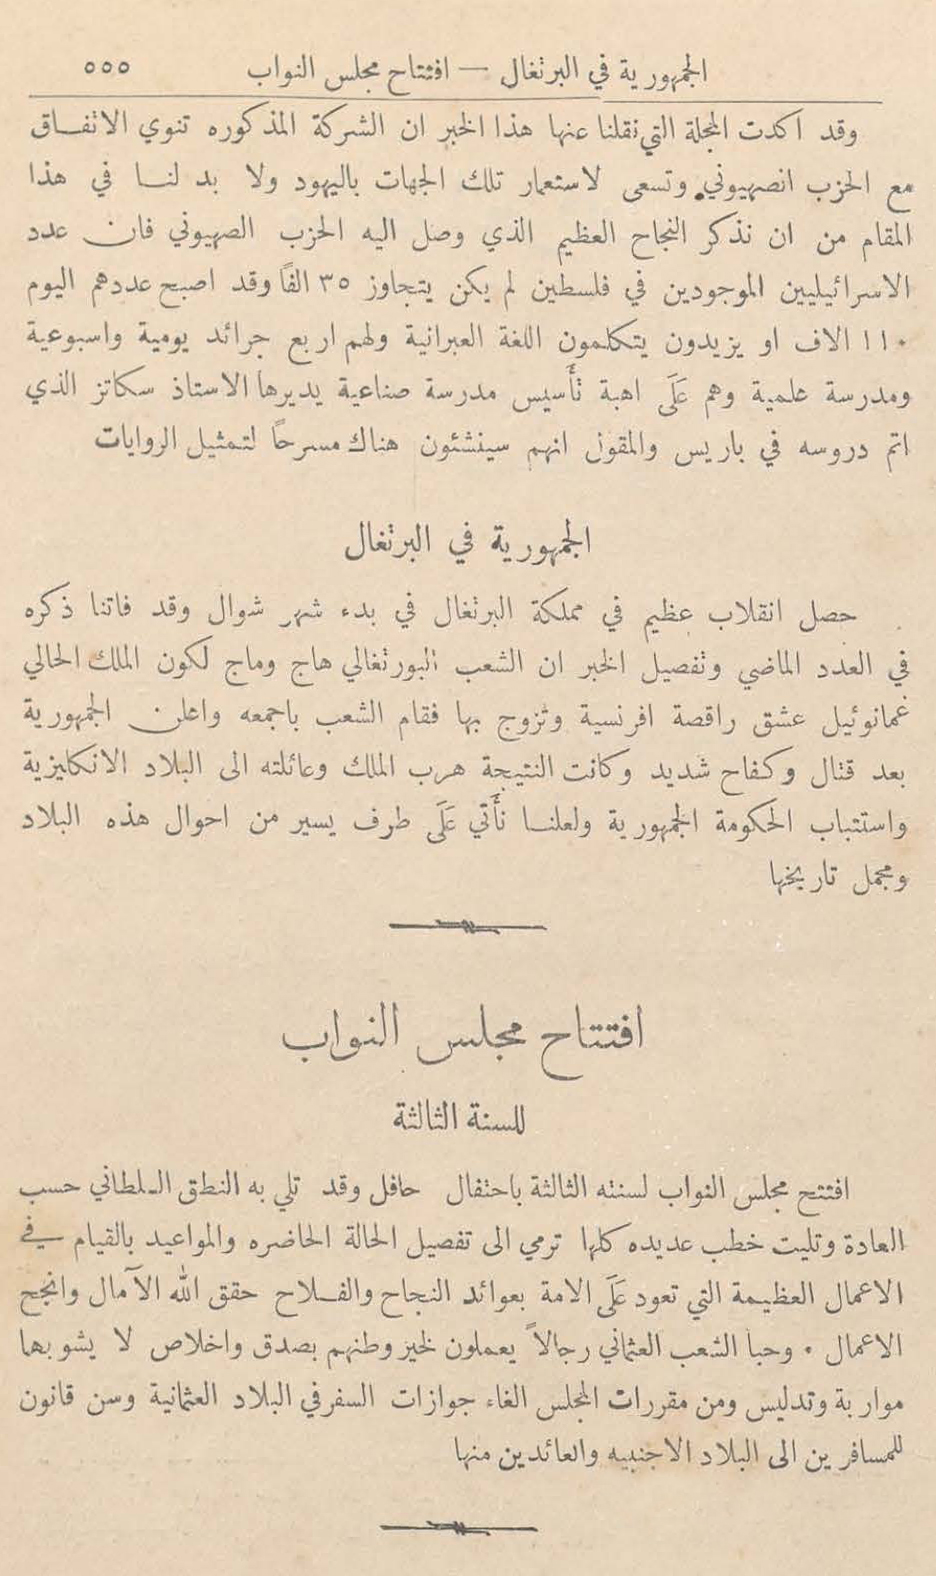 الجمهورية في البرتغال — افتتاح مجلس النواب ٥٥٥
وقد اكدت المجلة التي نقلنا عنها هذا الخبر ان الشركة المذكوره تنوي الاتفاق
مع الحزب انصهيوني. وتسعى لاستعمار تلك الجهات باليهود ولا بد لنا في هذا
المقام من ان نذكر النجاح العظيم الذي وصل اليه الحزب الصهيوني فان عدد
الاسرائيليين الموجودين في فلسطين لم يكن يتجاوز ٣٥ الفاً وقد اصبح عددهم اليوم
١١٠ الاف او يزيدون يتكلمون اللغة العبرانية ولهم اربع جرائد يومية واسبوعية
ومدرسة علمية وهم عَلَى اهبة تأَسيس مدرسة صناعية يديرها الاستاذ سكاتز الذي
اتم دروسه في باريس والمقول انهم سينشئون هناك مسرحاً لتمثيل الروايات
الجمهورية في البرتغال
حصل انقلاب عظيم في مملكة البرتغال في بدء شهر شوال وقد فاتنا ذكره
في العدد الماضي وتفصيل الخبر ان الشعب البورتغالي هاج وماج لكون الملك الحالي
غمانوئيل عشق راقصة افرنسية وتزوج بها فقام الشعب باجمعه واعلن الجمهورية
بعد قتال وكفاح شديد وكانت النتيجة هرب الملك وعائلته الى البلاد الانكليزية
واستتباب الحكومة الجمهورية ولعلنا نأَتي عَلَى طرف يسير من احوال هذه البلاد
ومجمل تاريخها
افتتاح مجلس النواب
للسنة الثالثة
افتتح مجلس النواب لسنته الثالثة باحتفال حافل وقد تلي به النطق السلطاني حسب
العادة وتليت خطب عديده كلها ترمي الى تفصيل الحالة الحاضره والمواعيد بالقيام في
الاعمال العظيمة التي تعود عَلَى الامة بعوائد النجاح والفلاح حقق الله الآمال وانجح
الاعمال . وحبا الشعب العثماني رجالاً يعملون لخير وطنهم بصدق واخلاص لا يشوبهما
مواربة وتدليس ومن مقررات المجلس الغاء جوازات السفر في البلاد العثمانية وسن قانون
للمسافرين الى البلاد الاجنبيه والعائدين منها